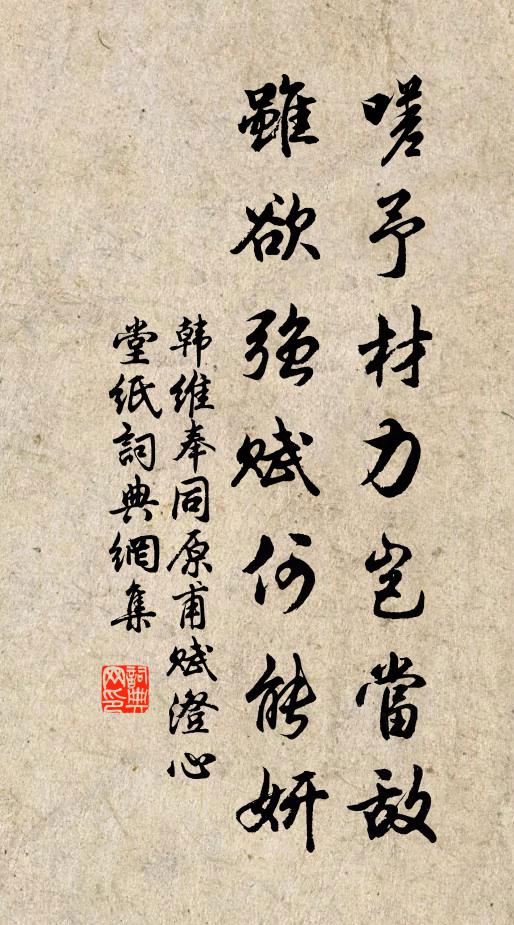 嗟予材力岂當敌
雖欲强赋何能妍
韩维奉同原甫赋澄心
堂纸詞典網集
詞典
网印